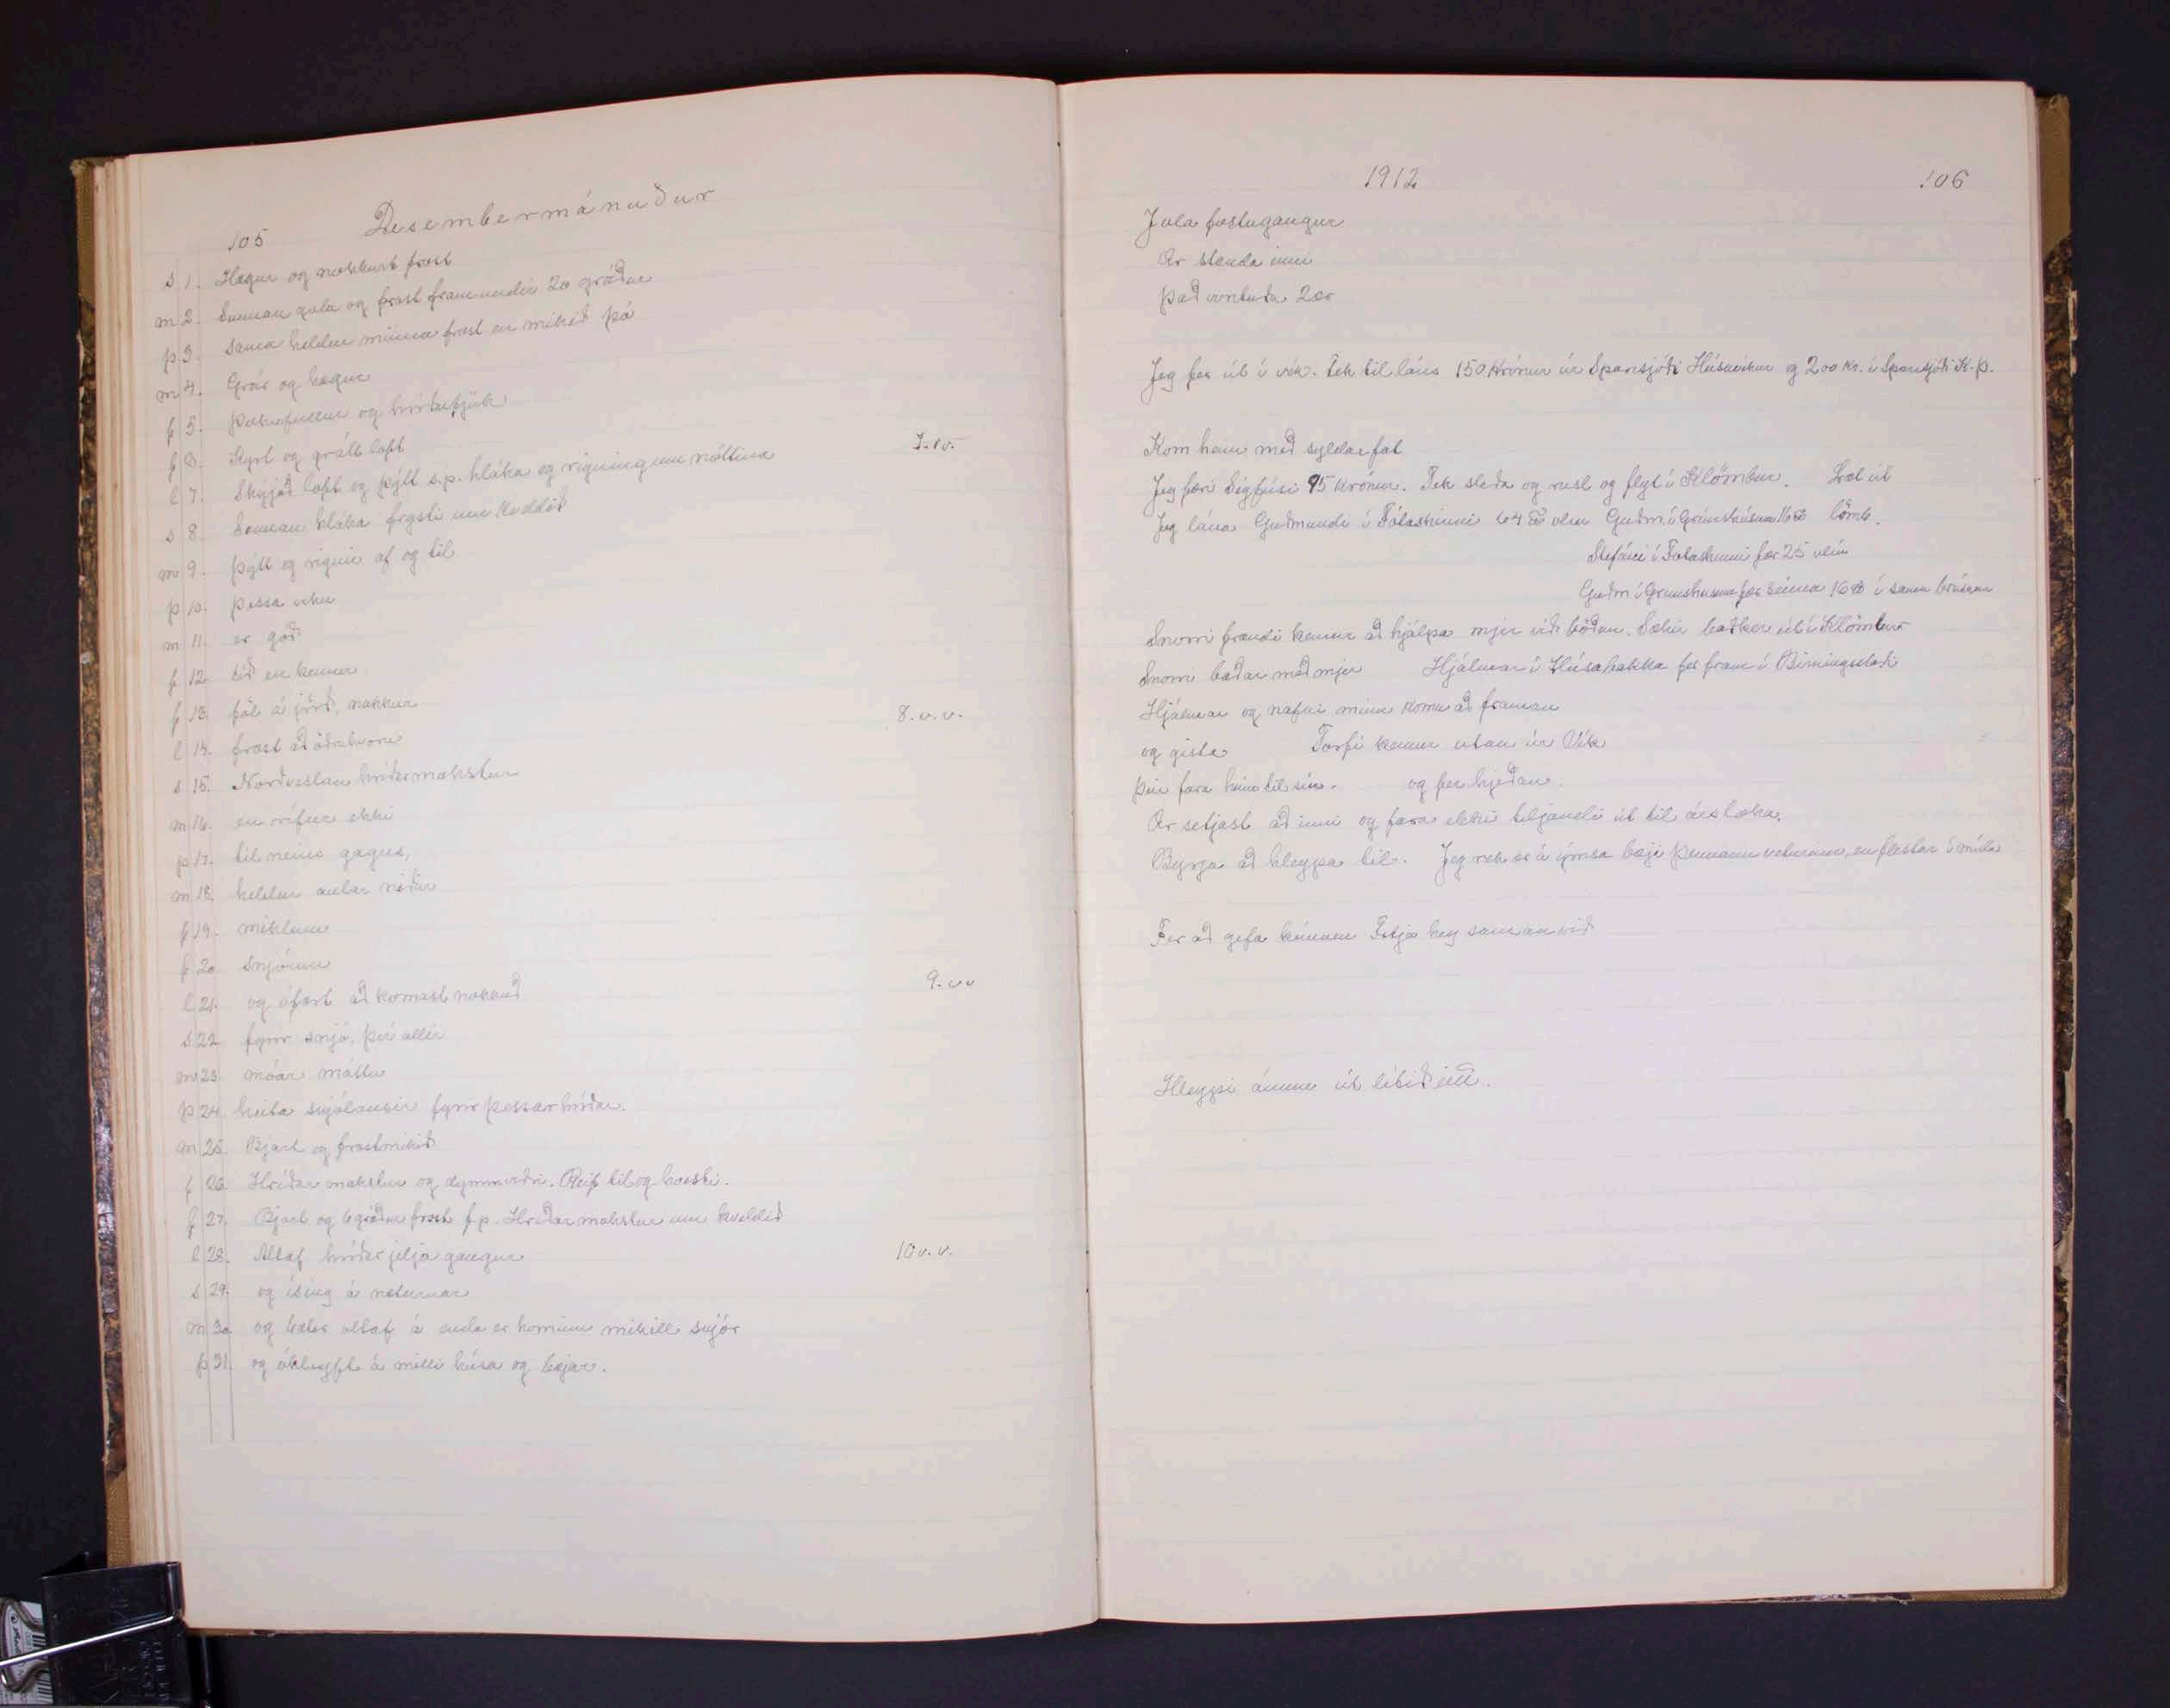 105 Desembermánuður
s 1. Hægur og nokkurt frost
m 2. Sunnan gola og frost framundir 20 gráður
þ 3. Sama heldur minna frost en mikið þá
m 4. Grár og hægur
f 5. Þokufullur og hríðarfjúk
f 6. Kyrt og grátt loft
l 7. Skýjað loft og þýtt s.p. hláka og rigning um nóttina 7.v.v.
s 8. Sunnan hláka frysti um kveldið
m 9. Þýtt og rignir af og til
þ 10. þessa viku
m 11. er góð
f 12. tíð en kemur
f 13. föl á jörð, nokkur
l 14. frost að öðruhvoru 8.v.v.
s 15. Norðvestan hríðarmokstur
m 16. en rífur ekki
þ 17. til neins gagns,
m 18. heldur niður
f 19. miklum
f 20 snjónum
l 21. og ófært að komast nokkuð 9.vv
s 22 fyrir snjó, því allir
m 23. móar máttu
þ 24. heita snjólausir fyrir þessar hríðar.
m 25. Bjart og frostmikið
f 26. Hríðar mokstur og dymmviðri. Reif til og hvessti.
f 27. Bjart og 6 gráður frost f.p. Hríðarmokstur um kveldið
l 28. Altaf hríðarjelja gangur 10 v.v.
s 29. og ísing á næturnar
m 30 og bætir altaf á enda er kominn mikill snjór
þ 31. og ókleyft á milli húsa og bæjar.
1912 106
Jóla föstugangur
Ær standa inni
það vöntuðu 2 ær
Jeg fer út í vík. Tek til láns 150 krónur úr Sparisjóði Húsavíkur og 200 kr. í Sparisjóði K.Þ.
Kom heim með syldarfat
Jeg færi Sigfúsi 95 krónur. Tek sleða og rusl og flyt í Klömbur. Læt út
Jeg lána Guðmundi í Fótaskinni 64 ℔ ulin Guðm. í Grímshúsum 16 ℔ lömb.
Stefáni í Fótaskinni fær 25 ulin
Guðm í Grímshúsum fær seinna 16 ℔ í sama brúsann
Snorri frændi kemur að hjálpa mjer við böðun. Sækir baðker út í Klömbur
Snorri baðar með mjer Hjálmar í Húsabakka fer fram í Birningsstaði
Hjálmar og nafni minn koma að framan
og gista Torfi kemur utan úr Vík
þeir fara heim til sín. og fer hjeðan.
Ær setjast að inni og fara ekki teljandi út til ársloka.
Byrja að hleypa til. Jeg rek ær á ýmsa bæji þennann veturinn, en flestar í múla
Fer að gefa kúnum Fitja hey saman við
Hleypi ánum út lítið eitt.